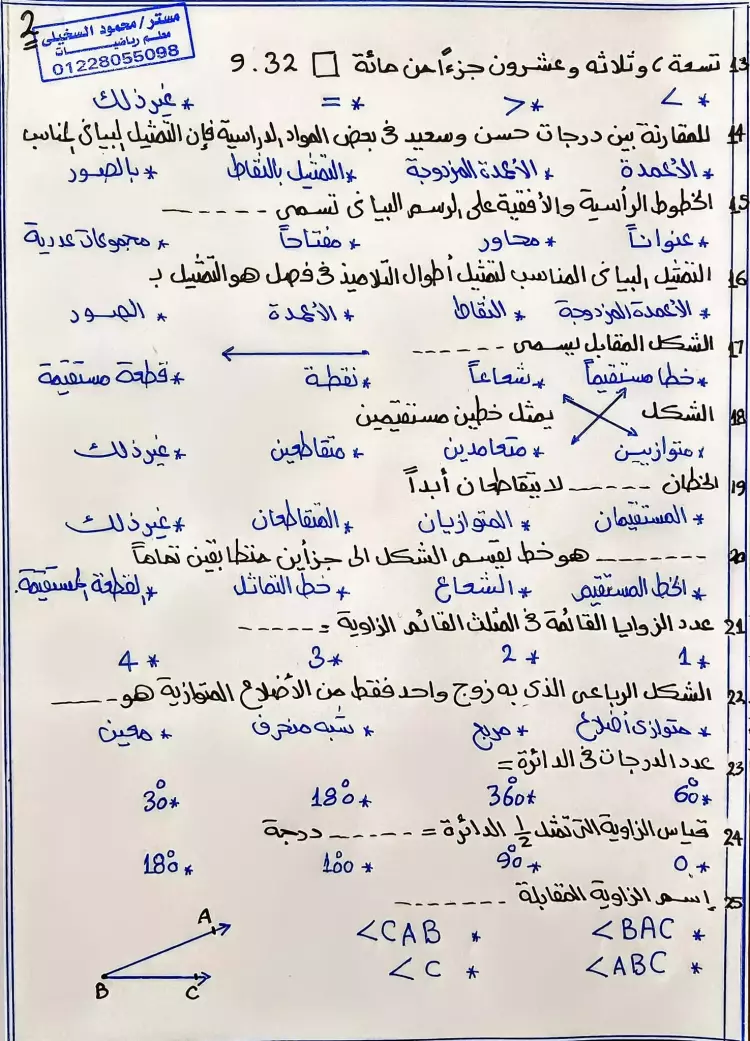 2
مستر/محمود السخيلى
معلم رياضيــــــات
01228055098
13 تسعة ، وثلاثه وعشرون جزءاً من مائة □ 9.32
* < * > * = * غير ذلك
14 للمقارنة بين درجات حسن وسعيد فى بعض المواد الدراسية فإن التمثيل البيانى المناسب
* الأعمدة * الأعمدة المزدوجة * التمثيل بالنقاط * بالصور
15 الخطوط الرأسية والأفقية على الرسم البيانى تسمى ------
* عنواناً * محاور * مفتاحاً * مجموعات عددية
16 التمثيل البيانى المناسب لتمثيل أطوال التلاميذ فى فصل هو التمثيل بـ
* الأعمدة المزدوجة * النقاط * الأعمدة * الصور
17 الشكل المقابل يسمى ------
* خطا مستقيماً * شعاعاً * نقطة * قطعة مستقيمة
18 الشكل يمثل خطين مستقيمين
* متوازيين * متعامدين * متقاطعين * غير ذلك
19 الخطان ------ لا يتقاطعان أبداً
* المستقيمان * المتوازيان * المتقاطعان * غير ذلك
20 -------- هو خط يقسم الشكل الى جزأين متطابقين تماماً
* الخط المستقيم * الشعاع * خط التماثل * القطعة المستقيمة.
21 عدد الزوايا القائمة فى المثلث القائم الزاوية = -----
* 1 * 2 * 3 * 4
22 الشكل الرباعى الذى به زوج واحد فقط من الأضلاع المتوازية هو ----
* متوازى أضلاع * مربع * شبه منحرف * معين
23 عدد الدرجات فى الدائرة =
* 60° * 360° * 180° * 30°
24 قياس الزاوية التى تمثل ½ الدائرة = ------ درجة
* 0 * 90° * 100° * 180°
25 إسم الزاوية المقابلة -------
* <BAC * <CAB
* <ABC * <C
A
B C